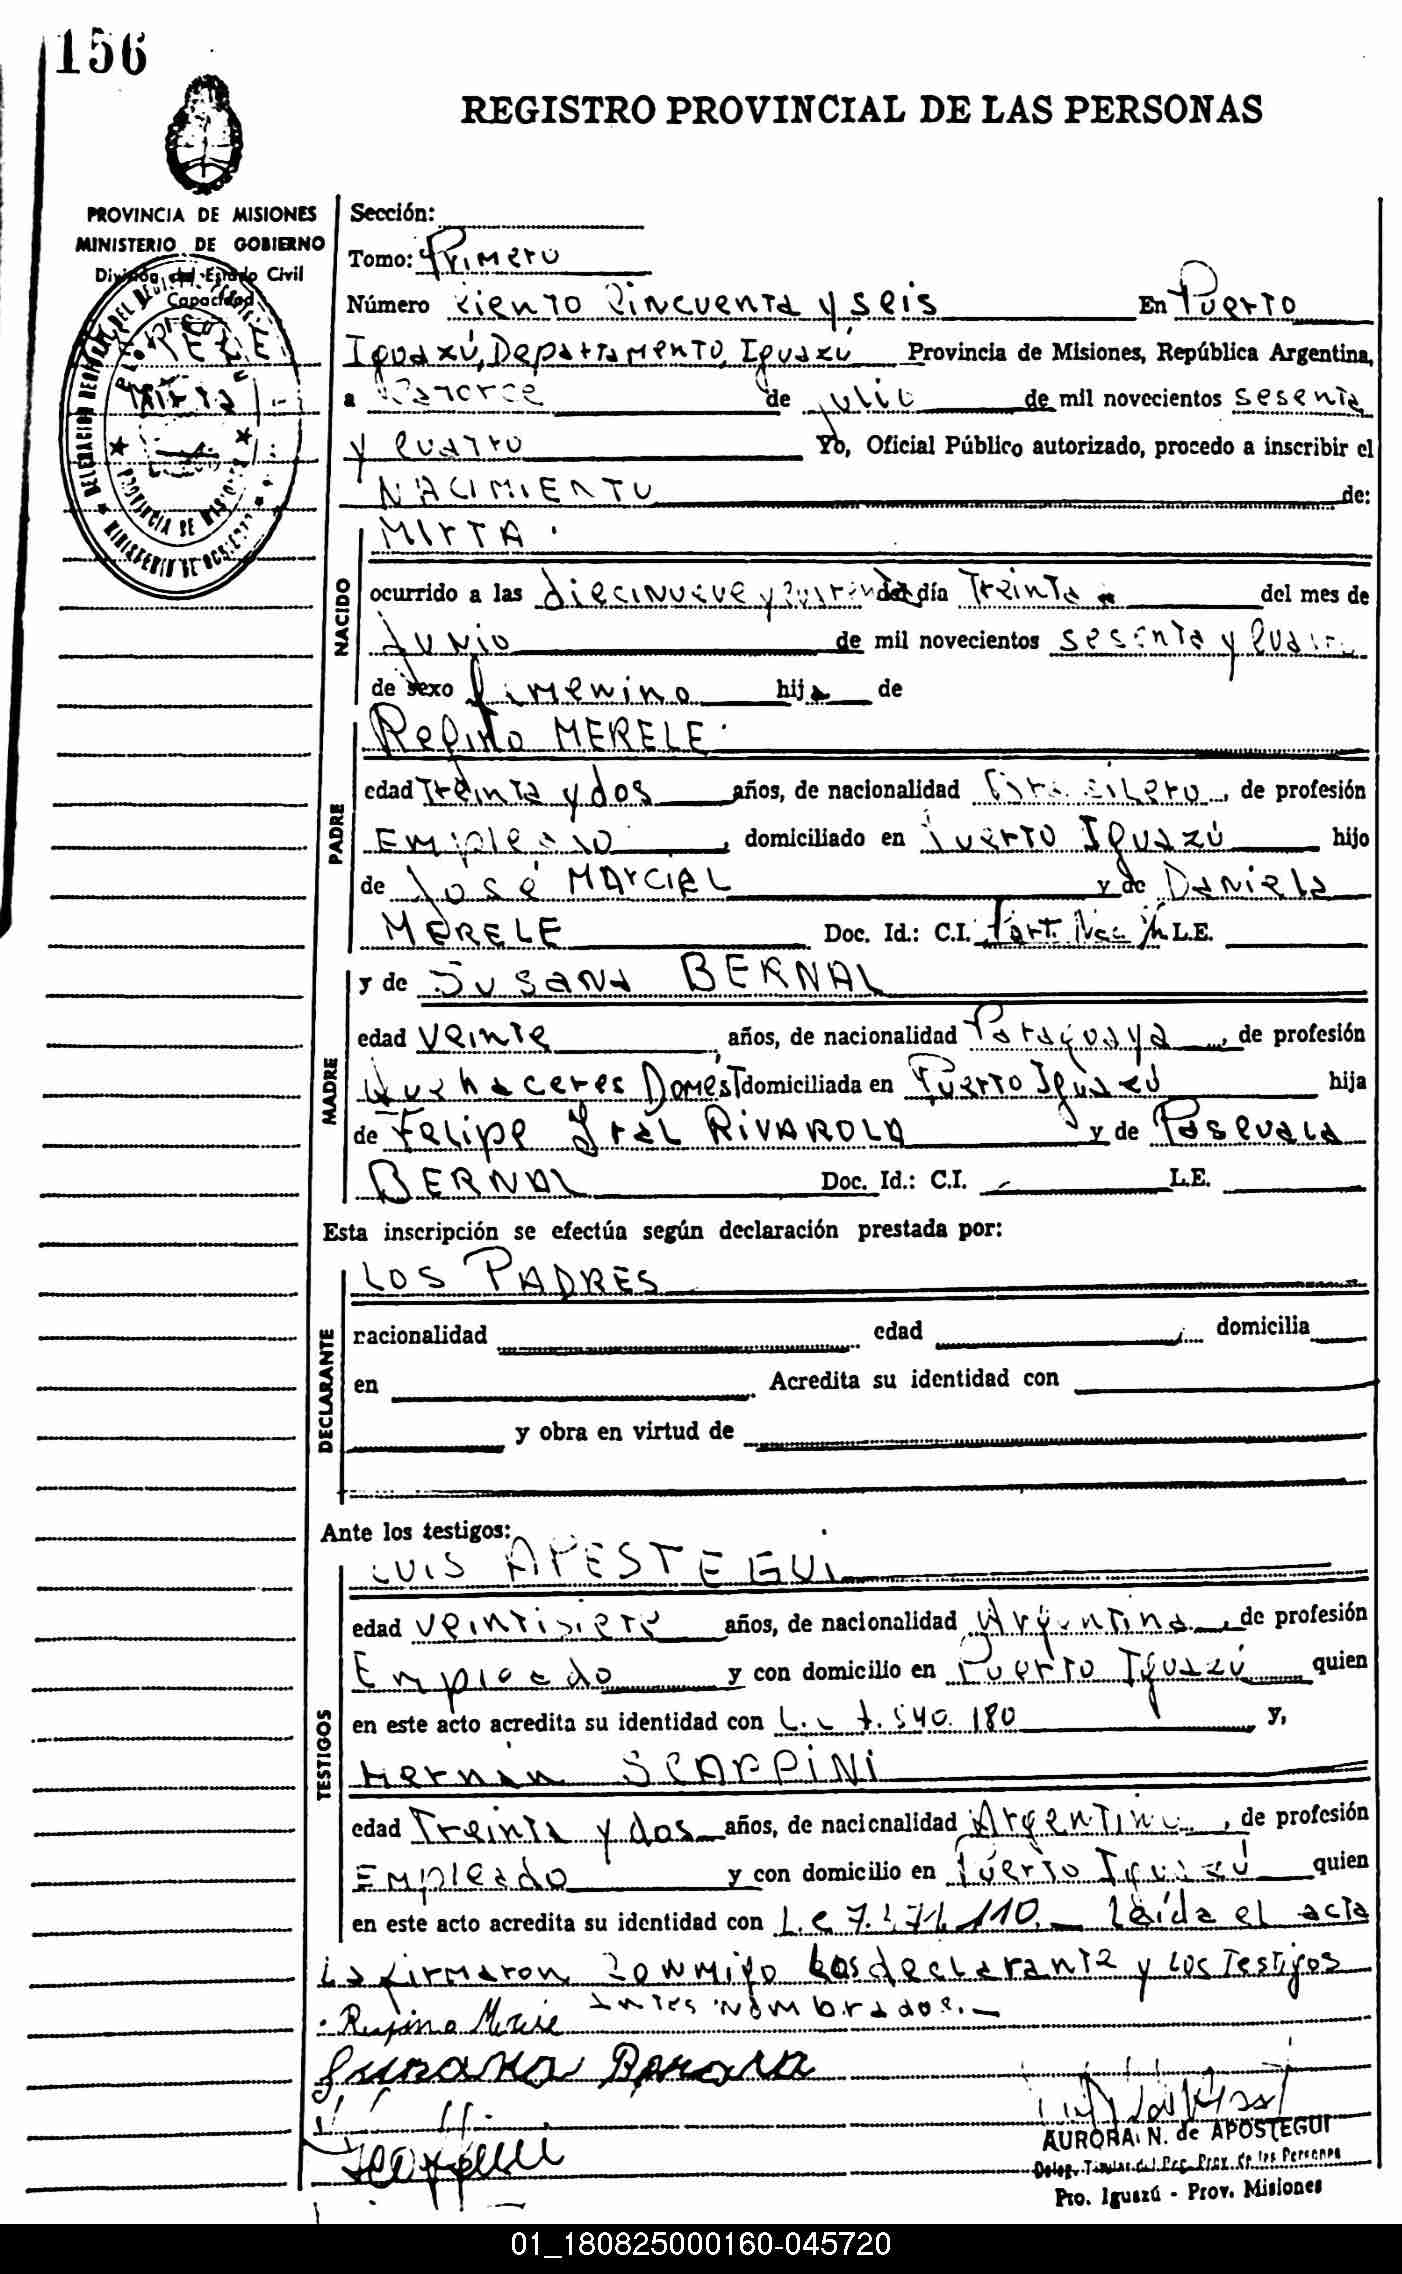 156
REGISTRO PROVINCIAL DE LAS PERSONAS
PROVINCIA DE MISIONES
MINISTERIO DE GOBIERNO
División del Estado Civil
Capacidad
MERELE
MIRTA
DELEGACION REGIONAL DEL REGISTRO
PROVINCIA DE MISIONES
MINISTERIO DE GOBIERNO
Sección:
Tomo: Primero
Número Ciento Cincuenta y seis En Puerto
Iguazú, Departamento Iguazú Provincia de Misiones, República Argentina,
a Catorce de julio de mil novecientos sesenta
y Cuatro Yo, Oficial Público autorizado, procedo a inscribir el
NACIMIENTO de:
NACIDO
MIRTA.
ocurrido a las diecinueve y cuarenta del día Treinta del mes de
Junio de mil novecientos sesenta y Cuatro
de sexo femenino hija de
PADRE
Refino MERELE.
edad Treinta y dos años, de nacionalidad Brasilero, de profesión
Empleado, domiciliado en Puerto Iguazú hijo
de José MARCIEL y de Daniela
MERELE Doc. Id.: C.I. Part. Nac. L.E.
MADRE
y de Susana BERNAL
edad Veinte años, de nacionalidad Paraguaya, de profesión
Quehaceres Domést domiciliada en Puerto Iguazú hija
de Felipe Yral RIVAROLA y de Pascuala
BERNAL Doc. Id.: C.I. L.E.
Esta inscripción se efectúa según declaración prestada por:
DECLARANTE
LOS PADRES
nacionalidad edad domicilia
en Acredita su identidad con
y obra en virtud de
Ante los testigos:
TESTIGOS
LUIS APESTEGUI
edad Veintisiete años, de nacionalidad Argentina, de profesión
Empleado y con domicilio en Puerto Iguazú quien
en este acto acredita su identidad con 540.180 y,
Hernán SCARPINI
edad Treinta y dos años, de nacionalidad Argentino, de profesión
Empleado y con domicilio en Puerto Iguazú quien
en este acto acredita su identidad con L.E 110. Leída el acta
La firmaron Conmigo Los declarante y Los Testigos
antes nombrados.
Susana Bernal
AURORA N. de APOSTEGUI
Deleg. Titular del Reg. Prov. de las Personas
Pto. Iguazú - Prov. Misiones
01_180825000160-045720